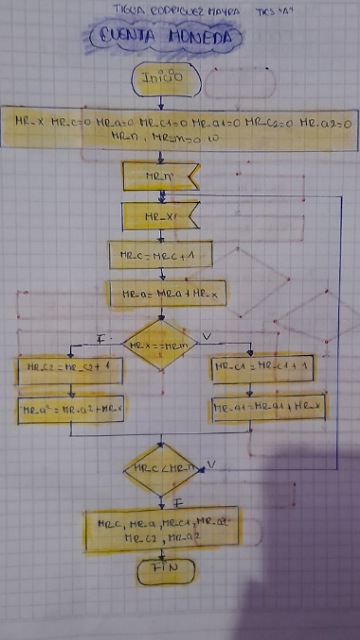 TIGUA RODRIGUEZ MAYRA TICS "A"
CUENTA MONEDA
Inicio
MR_X MR_C=0 MR_a=0 MR_C1=0 MR_a1=0 MR_C2=0 MR_a2=0
MR_n, MR_m=0.10
MR_n
MR_X
MR_C=MR_C+1
MR_a=MR_a+MR_X
F MR_X==MR_m V
MR_C2=MR_C2+1 MR_C1=MR_C1+1
MR_a2=MR_a2+MR_X MR_a1=MR_a1+MR_X
MR_C<MR_n V
F
MR_C, MR_a, MR_C1, MR_a1
MR_C2, MR_a2
FIN